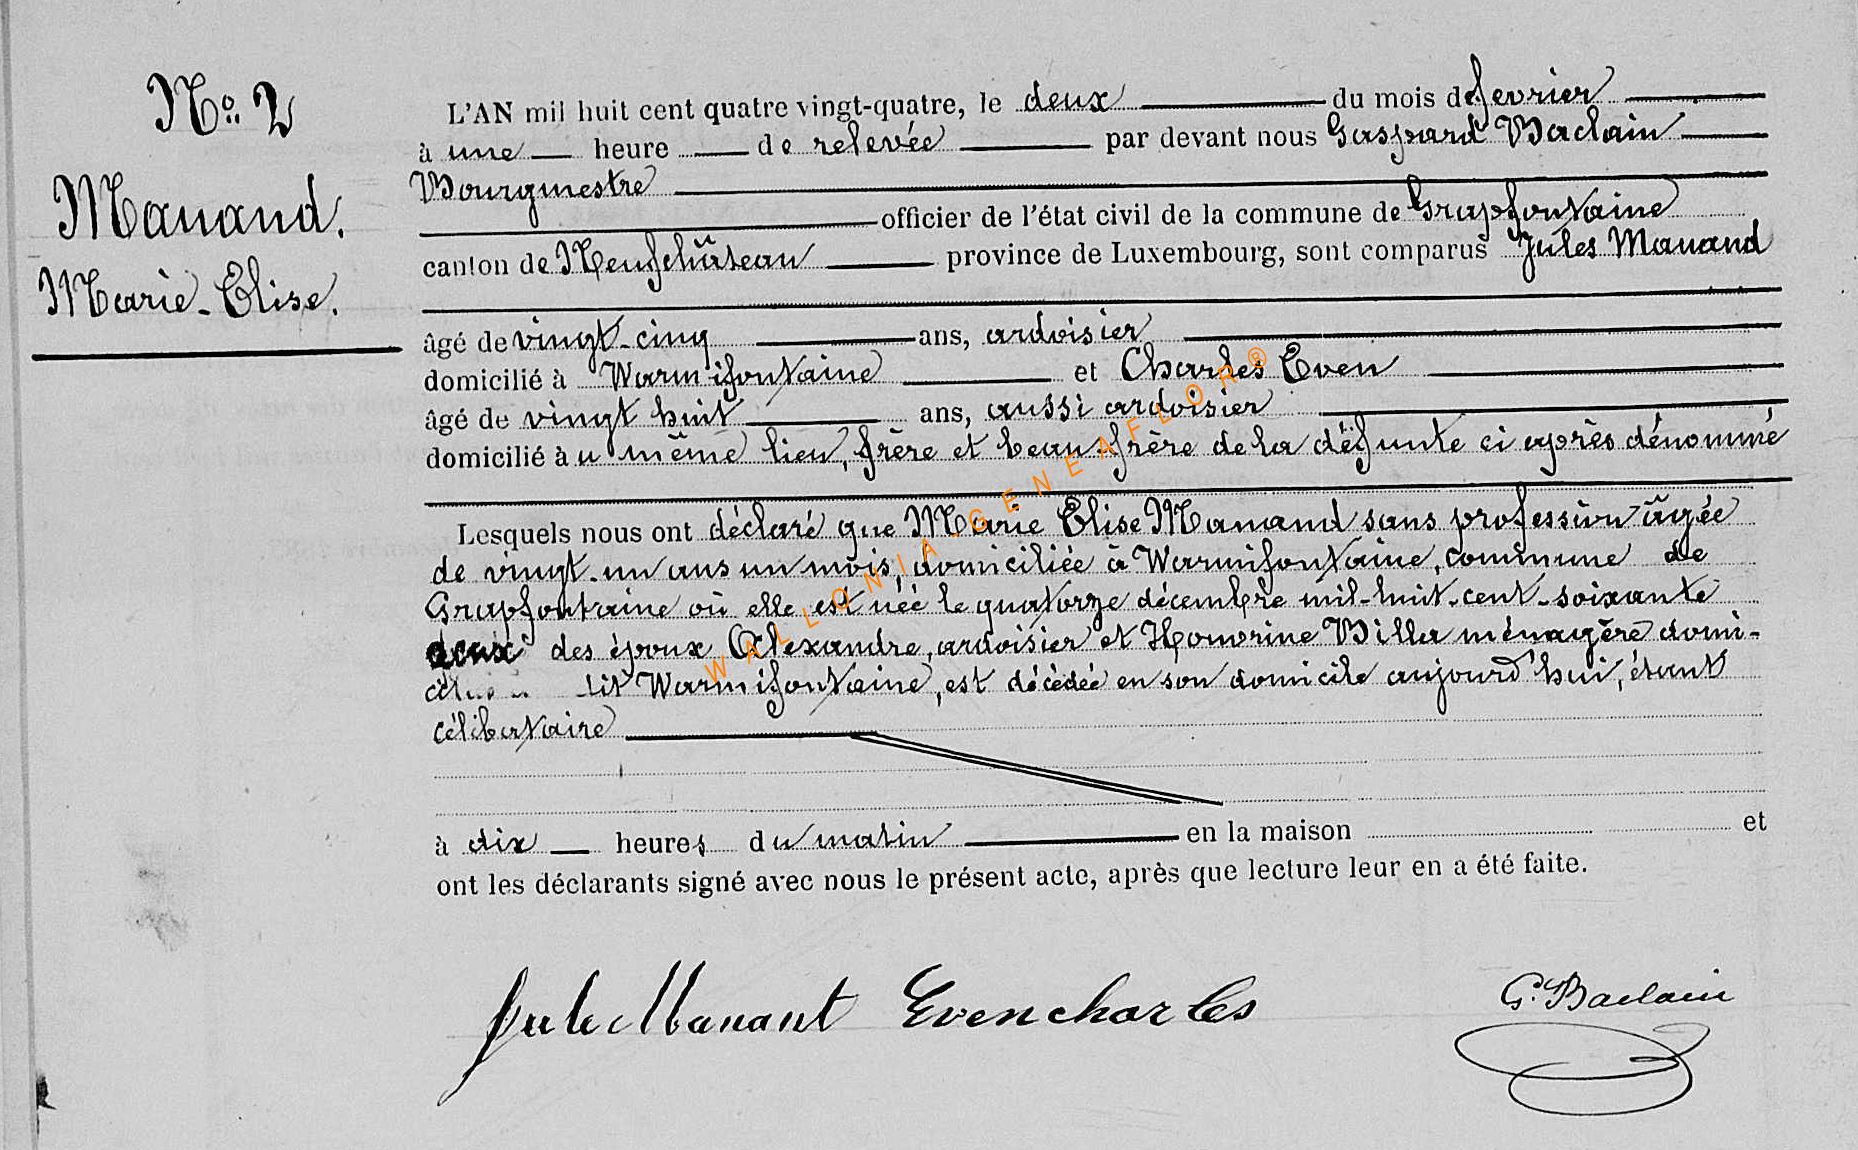 No. 2
Manand.
Marie-Elise.
L'AN mil huit cent quatre vingt-quatre, le deux du mois de fevrier
à une heure de relevée par devant nous Gaspard Baclain
Bourgmestre
officier de l'état civil de la commune de Grapfontaine
canton de Neufchâteau province de Luxembourg, sont comparus Jules Manand
âgé de vingt-cinq ans, ardoisier
domicilié à Warmifontaine et Charles Even
âgé de vingt huit ans, aussi ardoisier
domicilié au même lieu, frère et beau-frère de la défunte ci après dénommé
Lesquels nous ont déclaré que Marie Elise Manand sans profession âgée
de vingt-un ans un mois, domiciliée à Warmifontaine, commune de
Grapfontaine où elle est née le quatorze décembre mil-huit-cent-soixante
deux des époux Alexandre, ardoisier et Honorine Billa ménagère domi-
dit Warmifontaine, est décédée en son domicile aujourd'hui, étant
célibataire
à dix heures du matin en la maison et
ont les déclarants signé avec nous le présent acte, après que lecture leur en a été faite.
Jule Manant Even charles G. Baclain
WALLONIA-GENEAFLOR®